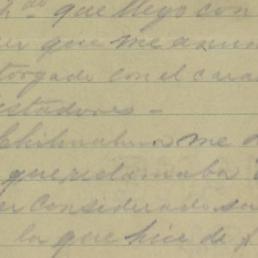 que llego con
que me anun
torgado con el cara
estadores —
Chihuahua me
que reclamaba
er considerado su
la que hice de